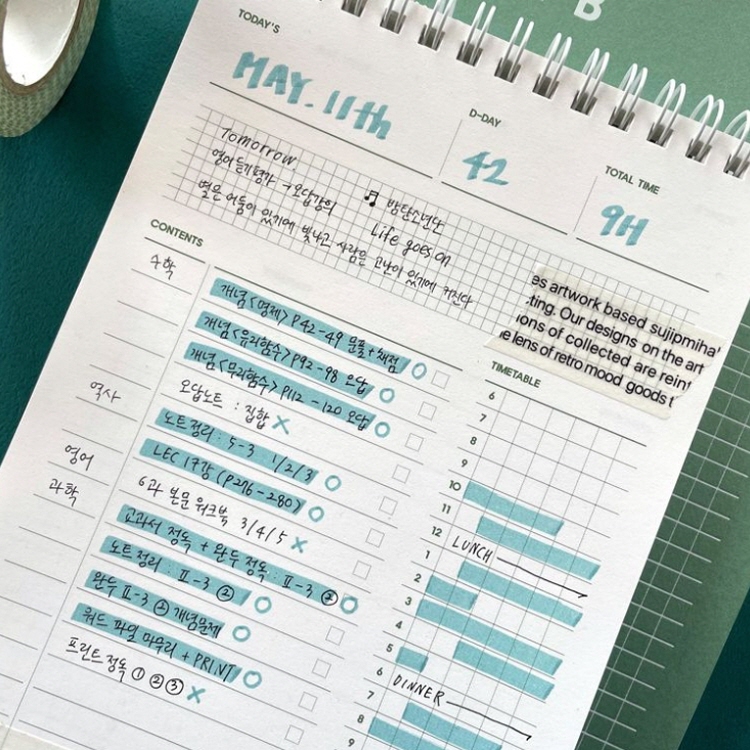 B
TODAY'S
MAY. 11th
D-DAY
42
TOTAL TIME
9H
Tomorrow.
영어듣기평가 → 오답강의
별은 어둠이 있기에 빛나고 사람은 고난이 있기에 커진다
♬ 방탄소년단
Life goes on
es artwork based sujipmiha
ting. Our designs on the art
ions of collected are rein
e lens of retro mood goods
CONTENTS
수학
개념 <명제> P42-49 문풀+채점 O
개념 <유리함수> P92-98 오답 O
개념 <무리함수> P112-120 오답 O
오답노트 : 집합 X
역사
노트정리 : 5-3 1/2/3 O
LEC 17강 (P276-280) O
영어
6과 본문 워크북 3/4/5 X
과학
교과서 정독 + 완두 정독 : Ⅱ-3 ② O
노트정리 : Ⅱ-3 ② O
완두 Ⅱ-3 ② 개념문제 O
워드 파일 마무리 + PRINT O
프린트 정독 ① ② ③ X
TIMETABLE
6
7
8
9
10
11
12 LUNCH
1
2
3
4
5
6 DINNER
7
8
9